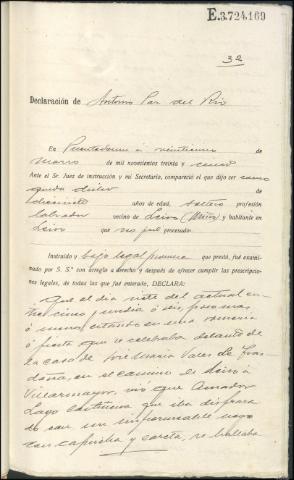 E.3.724.169
32
Declaración de Antonio Paz del Río
En Puentedeume á veintiuno de
Marzo de mil novecientos treinta y cinco
Ante el Sr. Juez de instrucción y mi Secretaria, compareció el que dijo ser como
queda dicho de
diecisiete años de edad, soltero profesión
labrador vecino de Leiro (Miño) y habitante en
Leiro que no fué procesado.
Instruído y bajo legal promesa que prestó, fué exami-
nado por S. S.ª con arreglo a derecho y después de ofrecer cumplir las prescripcio-
nes legales, de todas las que fué enterado, DECLARA:
Que el día siete del actual en-
tre cinco y media ó seis, poco mas
ó menos, estando en una romeria
ó fiesta que se celebraba delante de
la casa de José Maria Vales de
en el camino de Leiro á
Villarmayor, vió que Amador
Lago que iba disfraza
do con un impermeable negro
con capucha y careta, se hallaba